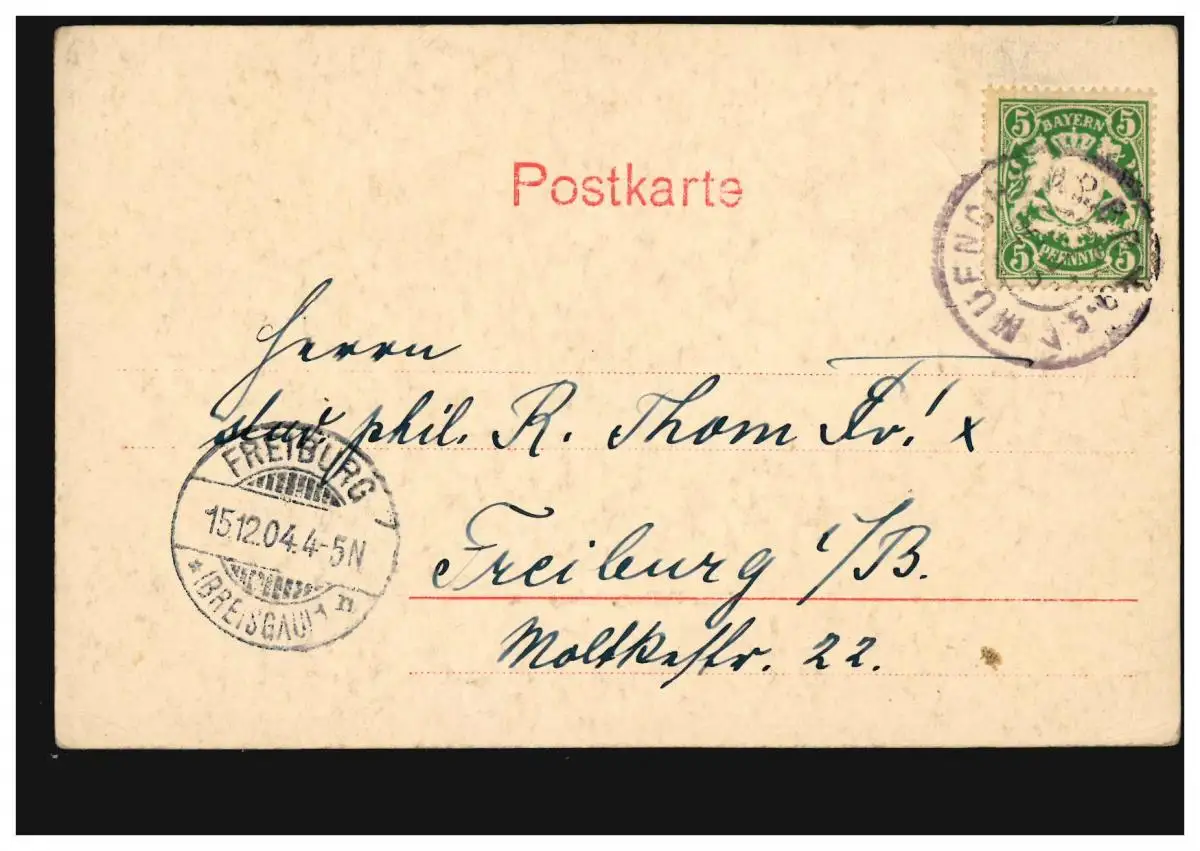 Postkarte
5 BAYERN 5
5 PFENNIG 5
MUENCH
V. 5-6
Herrn
phil. R. Thom Fr! x
Freiburg i/B.
Moltkestr. 22.
FREIBURG
15.12.04.4-5N
* (BREISGAU) 1 n